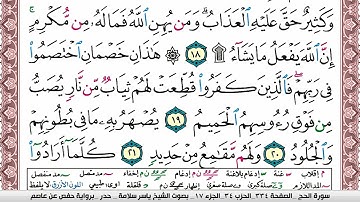 وَكَثِيرٌ حَقَّ عَلَيْهِ الْعَذَابُ ۗ وَمَن يُهِنِ اللَّهُ فَمَا لَهُ مِن مُّكْرِمٍ ۚ
إِنَّ اللَّهَ يَفْعَلُ مَا يَشَاءُ ۩ ١٨ ۞ هَٰذَانِ خَصْمَانِ اخْتَصَمُوا
فِي رَبِّهِمْ ۖ فَالَّذِينَ كَفَرُوا قُطِّعَتْ لَهُمْ ثِيَابٌ مِّن نَّارٍ يُصَبُّ
مِن فَوْقِ رُءُوسِهِمُ الْحَمِيمُ ١٩ يُصْهَرُ بِهِ مَا فِي بُطُونِهِمْ
وَالْجُلُودُ ٢٠ وَلَهُم مَّقَامِعُ مِنْ حَدِيدٍ ٢١ كُلَّمَا أَرَادُوا
سورة الحج . الصفحة ٣٣٤ . الحزب ٣٤ . الجزء ١٧ . بصوت الشيخ ياسر سلامة . حدر . برواية حفص عن عاصم